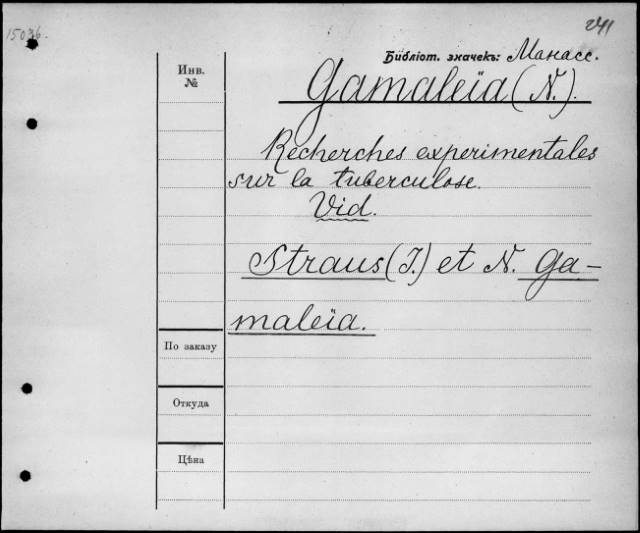 15036.
241
Библіот. значекъ: Манасс.
Инв.
№
Gamaleïa (N.).
Recherches experimentales
sur la tuberculose.
Vid.
Straus (I.) et N. Ga-
maleïa.
По заказу
Откуда
Цѣна